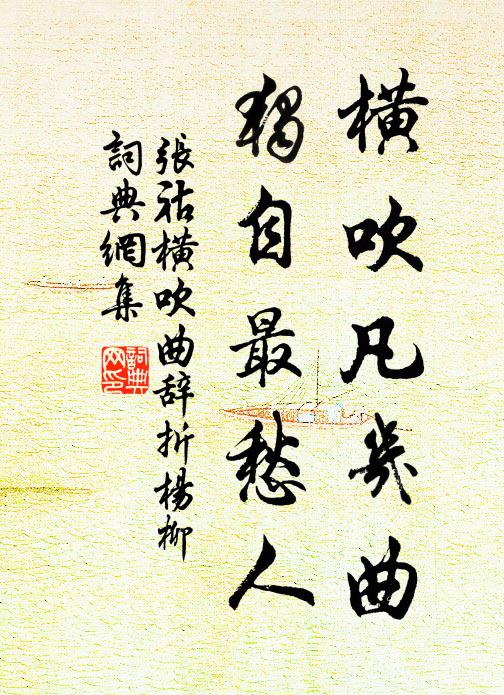 橫吹凡幾曲
獨自最愁人
張祜橫吹曲辞折楊柳
詞典網集
詞典网印